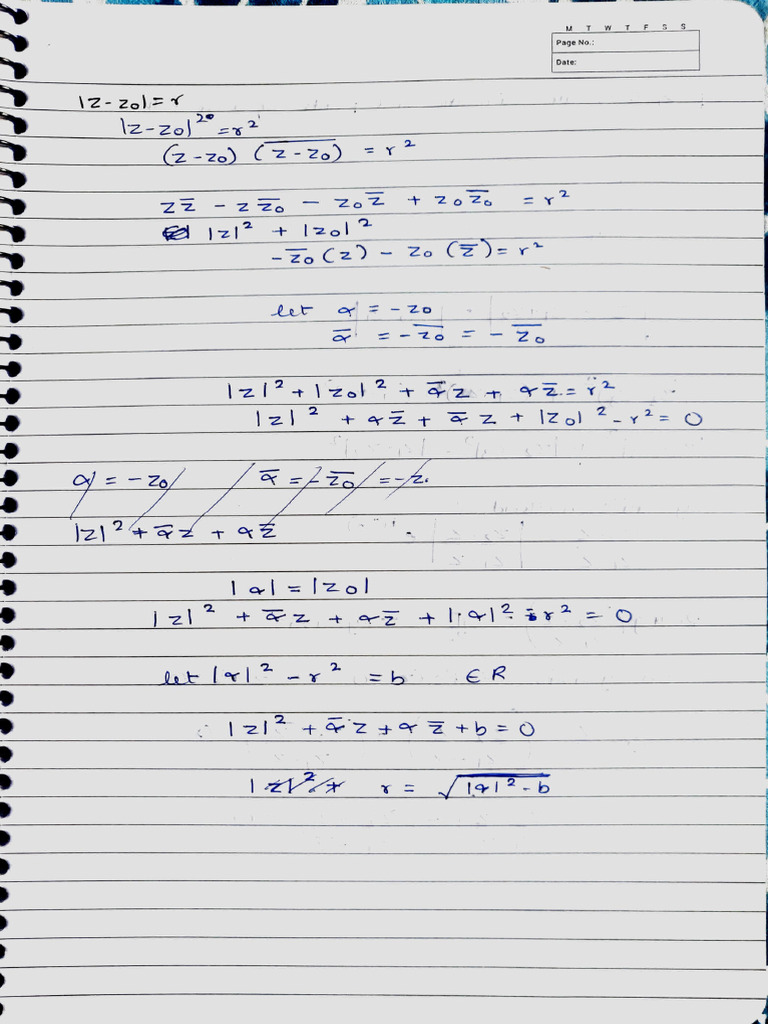 M T W T F S S
Page No.:
Date:
|z - z₀| = r
|z - z₀|² = r²
(z - z₀) (z̅ ̅-̅ ̅z̅₀̅) = r²
z z̅ - z z̅₀ - z₀ z̅ + z₀ z̅₀ = r²
|z|² + |z₀|²
- z̅₀ (z) - z₀ (z̅) = r²
let α = - z₀
α̅ = -̅z̅₀̅ = - z̅₀
|z|² + |z₀|² + α̅ z + α z̅ = r²
|z|² + α z̅ + α̅ z + |z₀|² - r² = 0
α = - z₀ α̅ = -̅z̅₀̅ = - z
|z|² + α̅ z + α z̅
|α| = |z₀|
|z|² + α̅ z + α z̅ + |α|² - r² = 0
let |α|² - r² = b ∈ R
|z|² + α̅ z + α z̅ + b = 0
|z|² + r = √|α|² - b